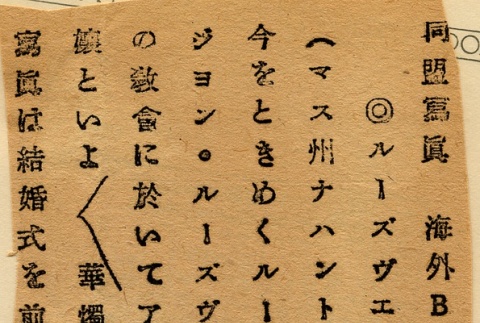 同盟寫眞　海外B
◎ルーズヴエ
（マス州ナハント
今をときめくルー
ジヨン・ルーズヴ
の敎會に於いてア
孃といよ〱華燭
寫眞は結婚式を前